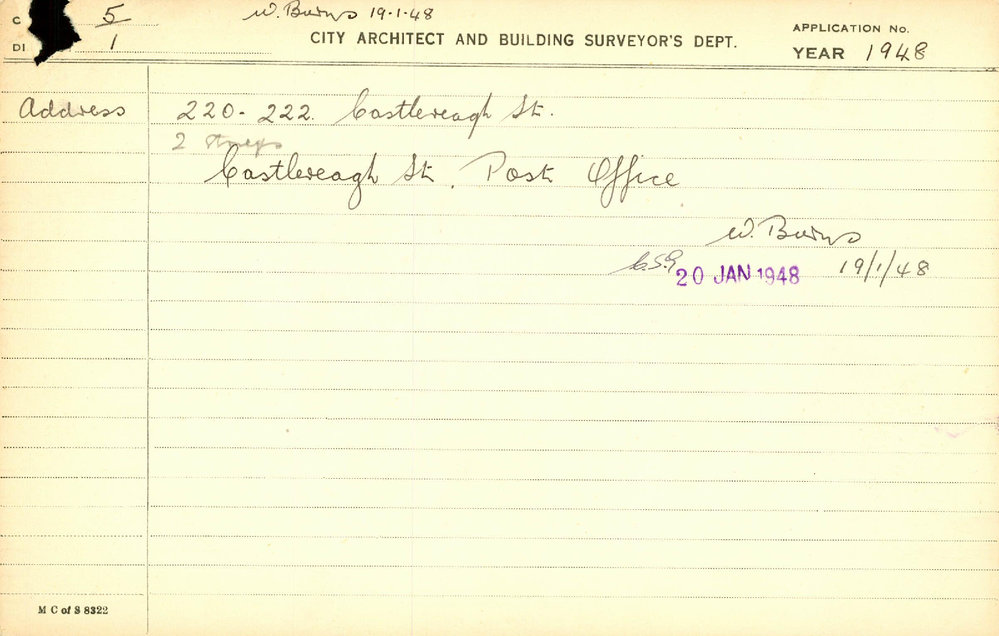 C 5 W. Burns 19.1.48
DI 1 CITY ARCHITECT AND BUILDING SURVEYOR'S DEPT.
APPLICATION No.
YEAR 1948
Address 220-222. Castlereagh St.
2 storeys
Castlereagh St. Post Office
W. Burns
20 JAN 1948 19/1/48
M C of S 8322